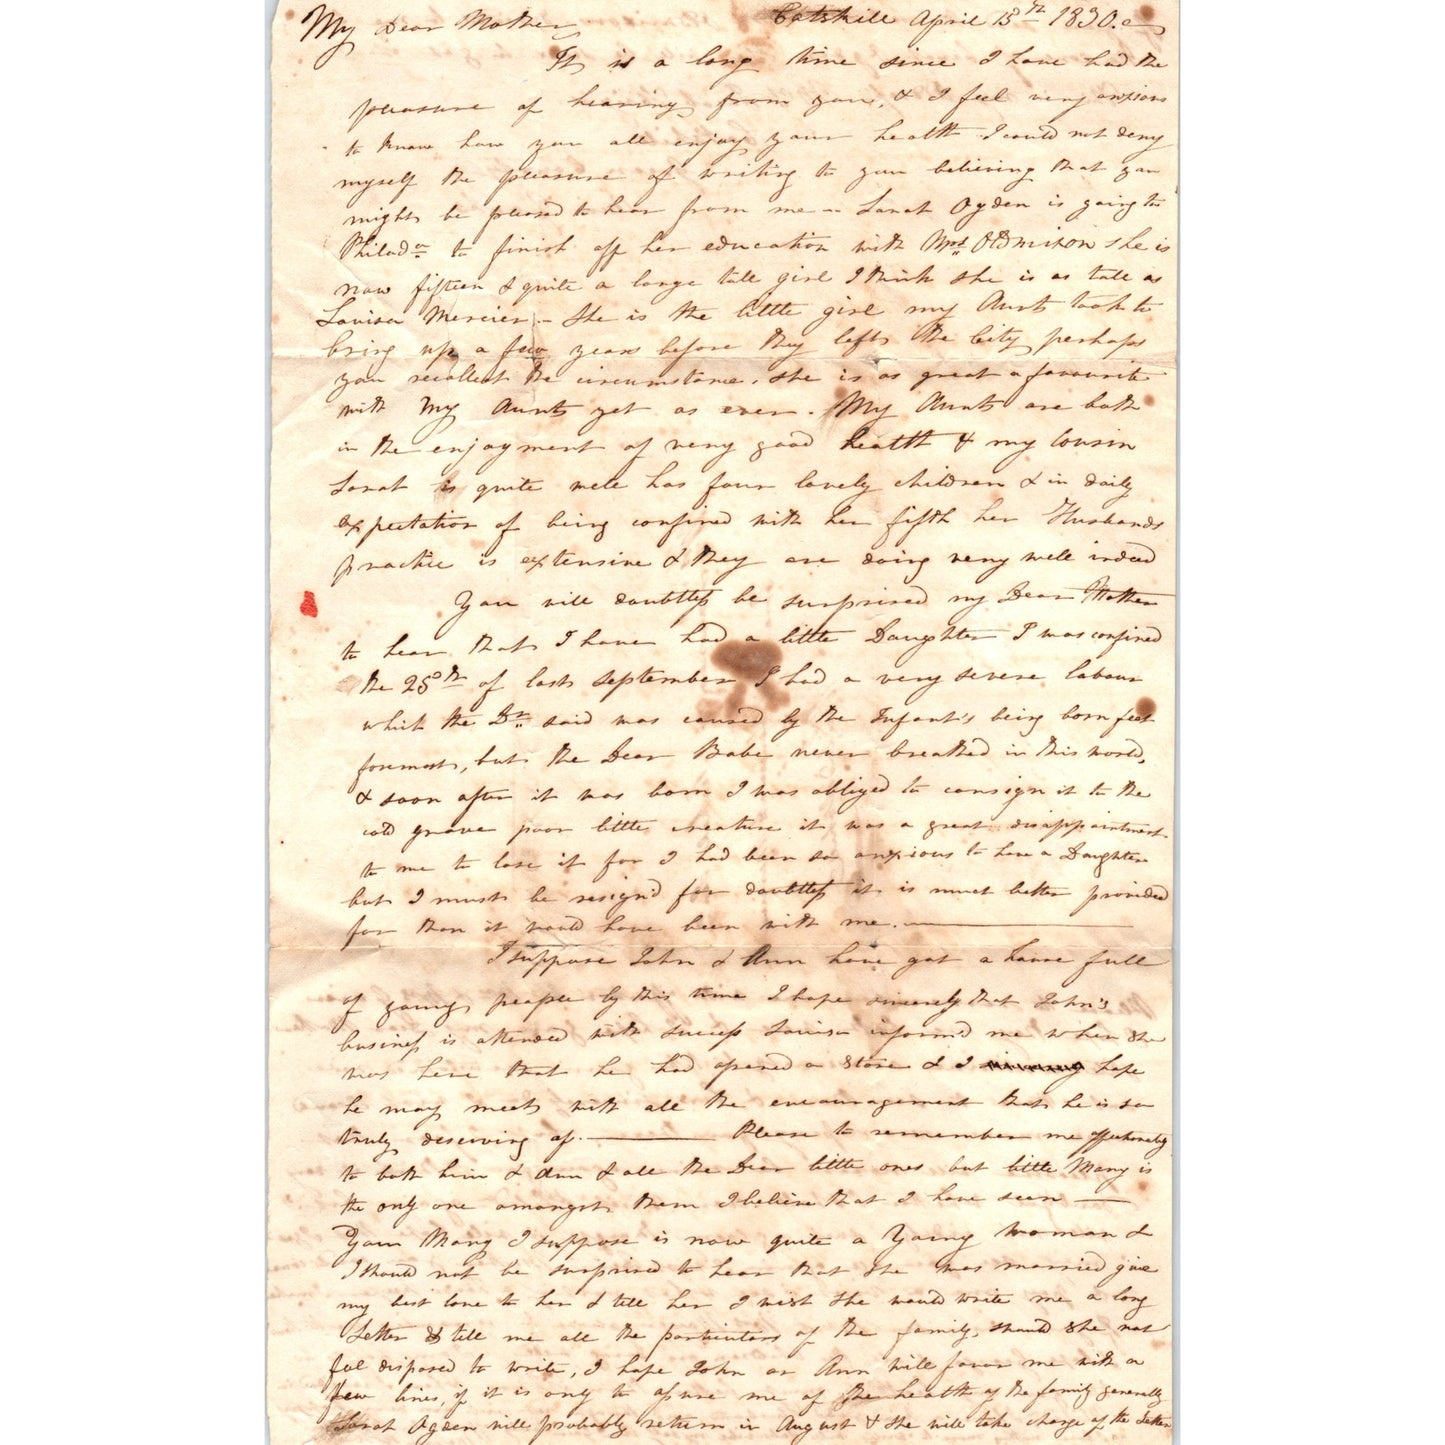 My Dear Mother Catskill April 13th 1830.
It is a long time since I have had the
pleasure of hearing from you, & I feel very anxious
to know how you all enjoy your health I could not deny
myself the pleasure of writing to you believing that you
might be pleased to hear from me — Sarah Ogden is going to
Philada to finish off her education with Mrs Oldmixon she is
now fifteen & quite a large tall girl I think she is as tall as
Louisa Mercier — She is the little girl my Aunts took to
bring up a few years before they left the City perhaps
you recollect the circumstance. she is as great a favourite
with My Aunts yet as ever. My Aunts are both
in the enjoyment of very good health & my Cousin
Sarah is quite well has four lovely children & in daily
expectation of being confined with her fifth her Husbands
practice is extensive & they are doing very well indeed
You will doubtless be surprised my Dear Mother
to hear that I have had a little Daughter I was confined
the 25th of last September I had a very severe labour
which the Dr. said was caused by the Infant's being born feet
foremost, but the Dear Babe never breathed in this world,
& soon after it was born I was obliged to consign it to the
cold grave poor little creature it was a great disappointment
to me to lose it for I had been so anxious to have a Daughter
but I must be resign'd for doubtless it is much better provided
for than it would have been with me. —
I suppose John & Ann have got a house full
of young people by this time I hope sincerely that John's
business is attended with success Louisa inform'd me when she
was here that he had opened a Store & I hope
he may meet with all the encouragement that he is so
truly deserving of. — Please to remember me affectionately
to both him & Ann & all the Dear little ones but little Mary is
the only one amongst them I believe that I have seen —
Your Mary I suppose is now quite a Young Woman &
I should not be surprised to hear that she was married give
my best love to her & tell her I wish she would write me a long
Letter & tell me all the particulars of the family, should she not
feel disposed to write, I hope John or Ann will favor me with a
few lines, if it is only to assure me of the health of the family generally
Sarah Ogden will probably return in August & she will take charge of the Letter